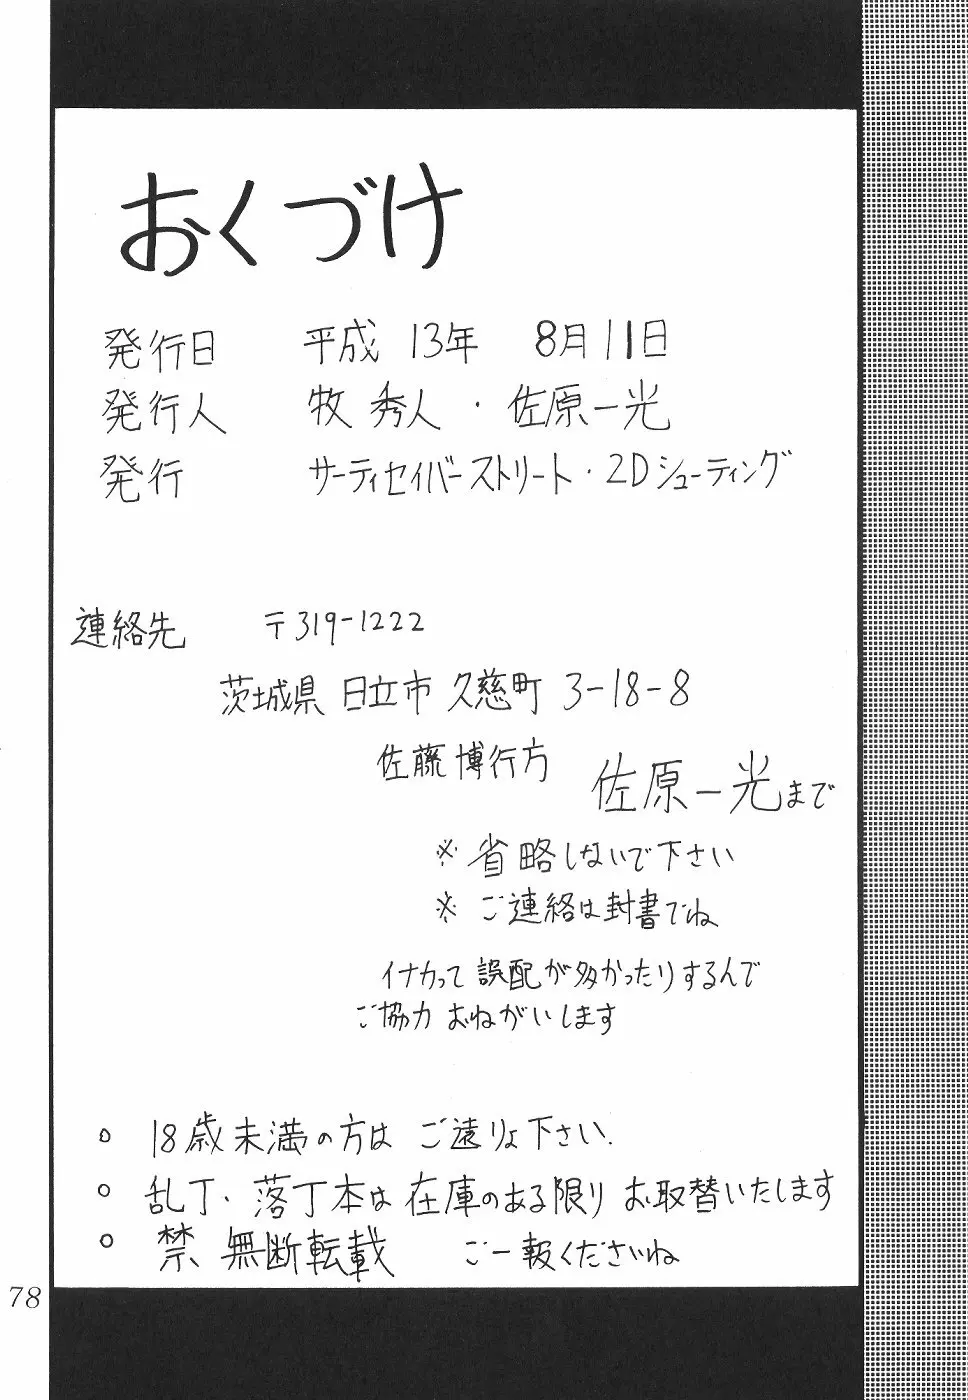 おくづけ
発行日 平成 13年 8月11日
発行人 牧 秀人・佐原一光
発行 サーティセイバーストリート・2Dシューティング
連絡先 〒319-1222
茨城県 日立市 久慈町 3-18-8
佐藤 博行方 佐原一光まで
※ 省略しないで下さい
※ ご連絡は封書でね
イナカって誤配が多かったりするんで
ご協力 おねがいします
○ 18歳未満の方は ご遠りょ下さい.
○ 乱丁・落丁本は在庫のある限り お取替いたします
○ 禁 無断転載 ご一報くださいね
78